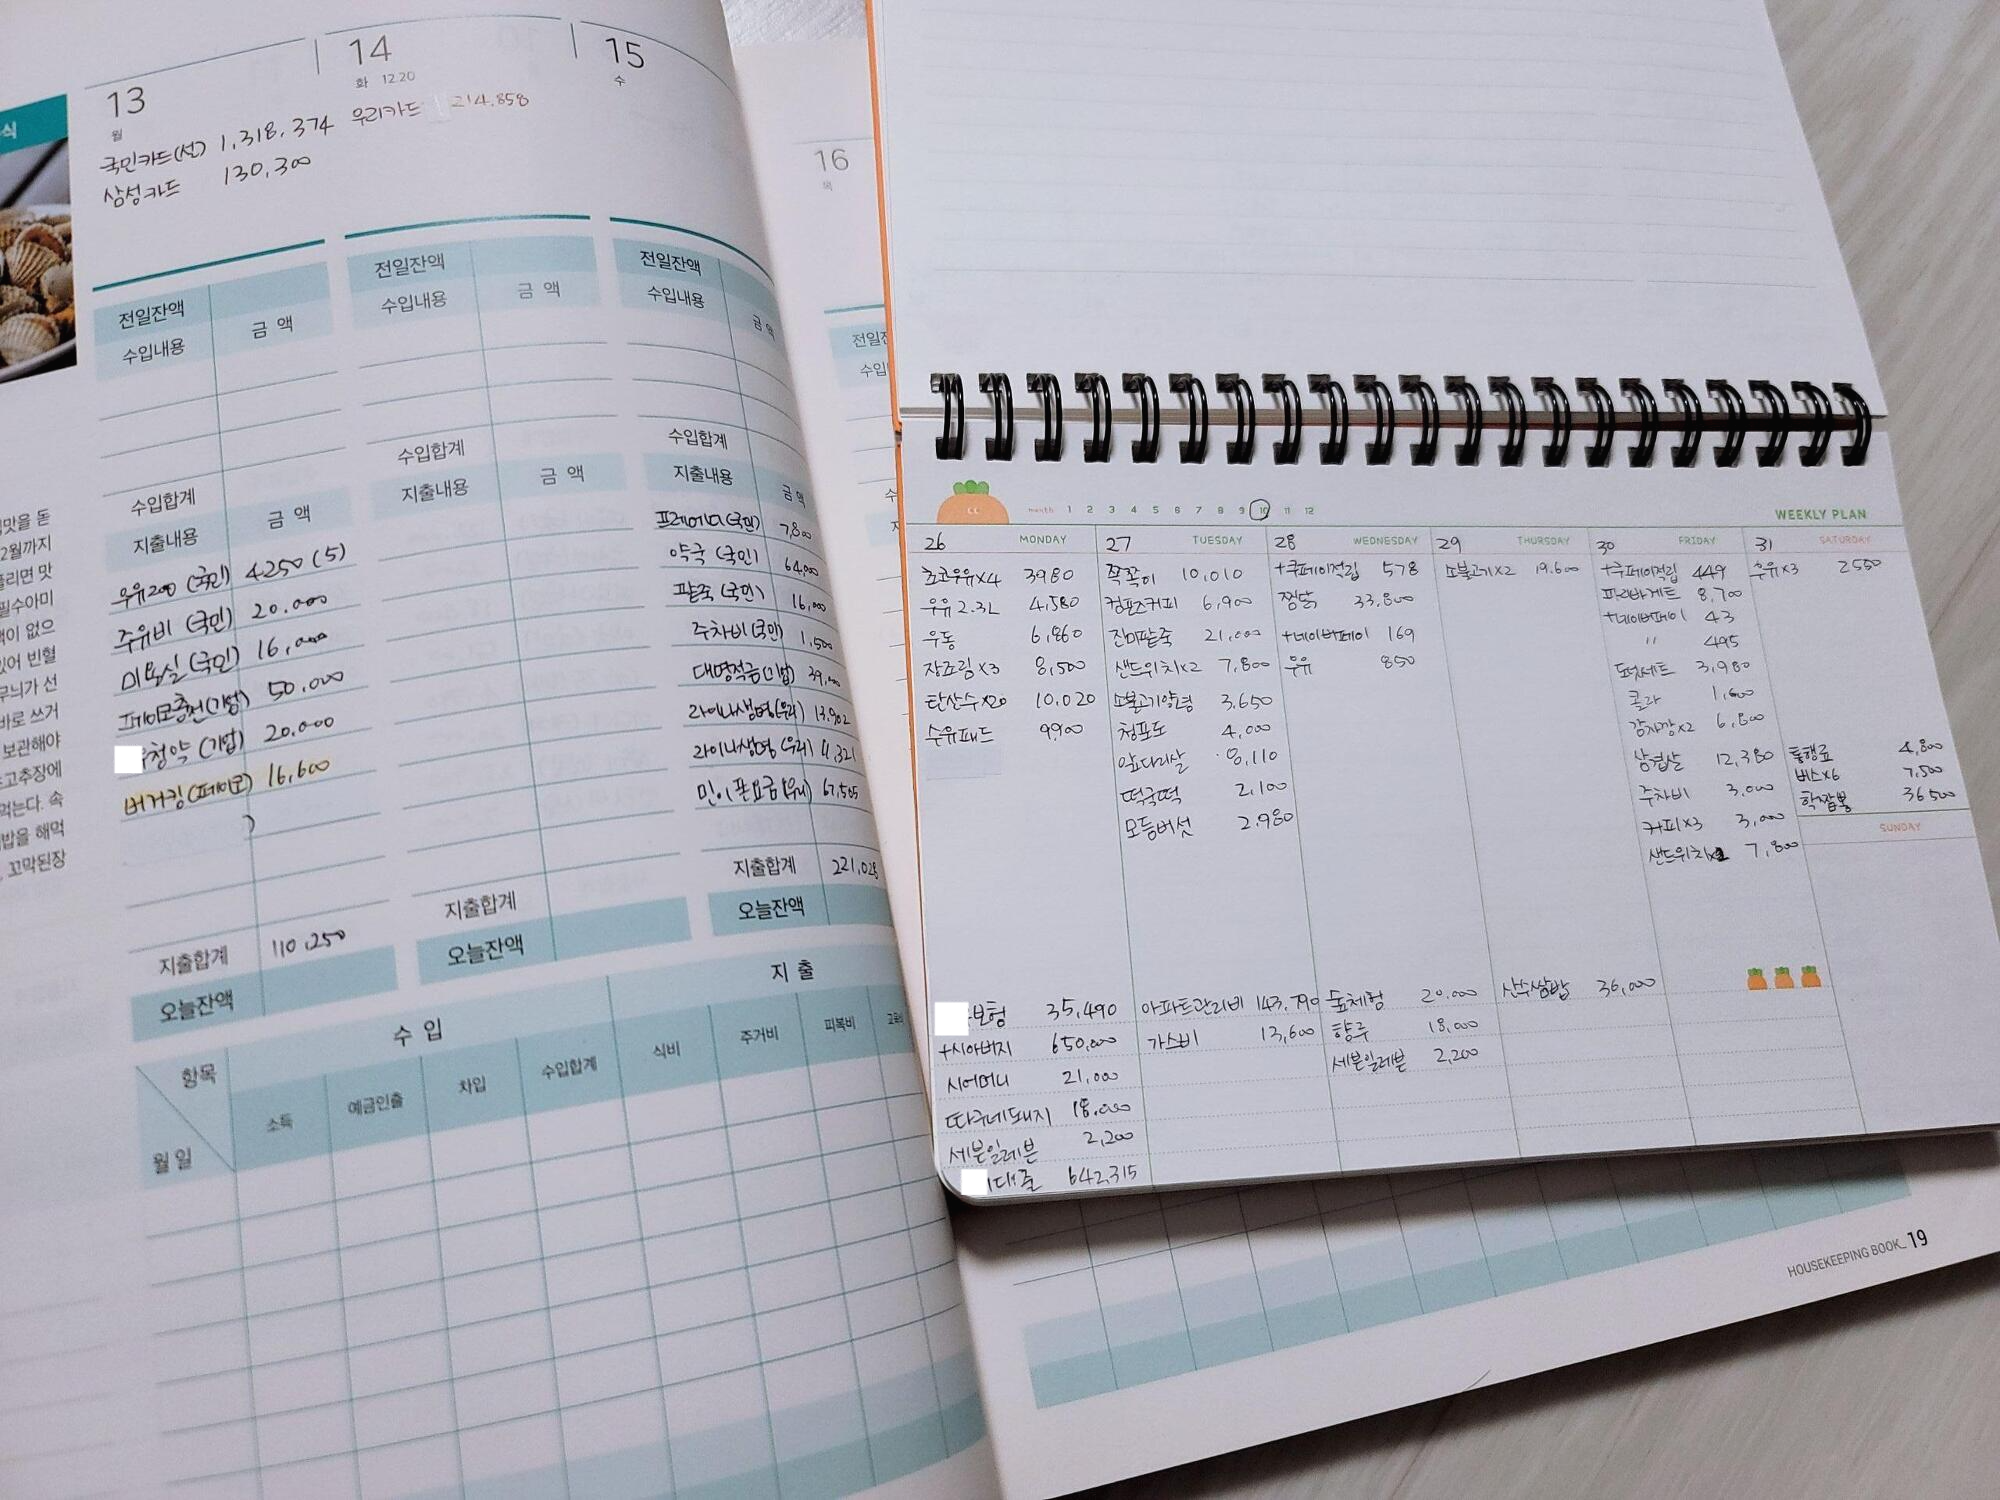 식
맛을 돈
2월까지
들리면 맛
필수아미
무늬가 선
바로 쓰거
보관해야
고추장에
먹는다. 속
밥을 해먹
꼬막된장
13
월
국민카드(선) 1,318,374
삼성카드 130,300
14
화 12.20
우리카드 214,858
15
수
16
목
전일잔액
수입내용 금 액
수입합계
지출내용 금 액
우유200 (국민) 4250 (5)
주유비 (국민) 20.000
미용실 (국민) 16,000
페이코충전(기업) 50.000
청약 (기업) 20.000
버거킹(페이코) 16,600
지출합계 110,250
오늘잔액
전일잔액
수입내용 금 액
수입합계
지출내용 금 액
지출합계
오늘잔액
전일잔액
수입내용 금 액
수입합계
지출내용 금 액
프레에디(국민) 7,800
약국 (국민) 64,000
팥죽 (국민) 16,000
주차비(국민) 1,500
대명적금(기업) 39,000
라이나생명(우리) 13,902
라이나생명 (우리) 11,321
민이폰요금(우리) 67,505
지출합계 221,028
오늘잔액
수 입
지 출
항목
월 일
소득 예금인출 차입 수입합계 식비 주거비 피복비
month 1 2 3 4 5 6 7 8 9 10 11 12
WEEKLY PLAN
26 MONDAY
초코우유x4 3980
우유 2.3L 4,580
우동 6,860
장조림x3 8,500
탄산수x20 10,020
수유패드 9900
보험 35,490
+시아버지 650,000
시어머니 21,000
따구네돼지 18,000
세븐일레븐 2,200
대출 642,315
27 TUESDAY
쫙쫙이 10,010
컴포즈커피 6,900
진미팥죽 21,000
샌드위치x2 7,800
소불고기양념 3,650
청포도 4,000
앞다리살 8,110
떡국떡 2,100
모듬버섯 2,980
아파트관리비 143,790
가스비 13,600
28 WEDNESDAY
+쿠페이적립 578
찜닭 33,800
+네이버페이 169
우유 850
숲체험 20.000
향루 18,000
세븐일레븐 2,200
29 THURSDAY
소불고기x2 19,600
산수쌈밥 36,000
30 FRIDAY
+쿠페이적립 449
파리바게트 8,700
+네이버페이 43
" 495
도넛세트 3,980
콜라 1,600
감자깡x2 6,800
삼겹살 12,380
주차비 3,000
커피x3 3,000
샌드위치x2 7,800
31 SATURDAY
우유x3 2550
통행료 4,800
버스x6 7,500
학짬뽕 36500
SUNDAY
HOUSEKEEPING BOOK_19